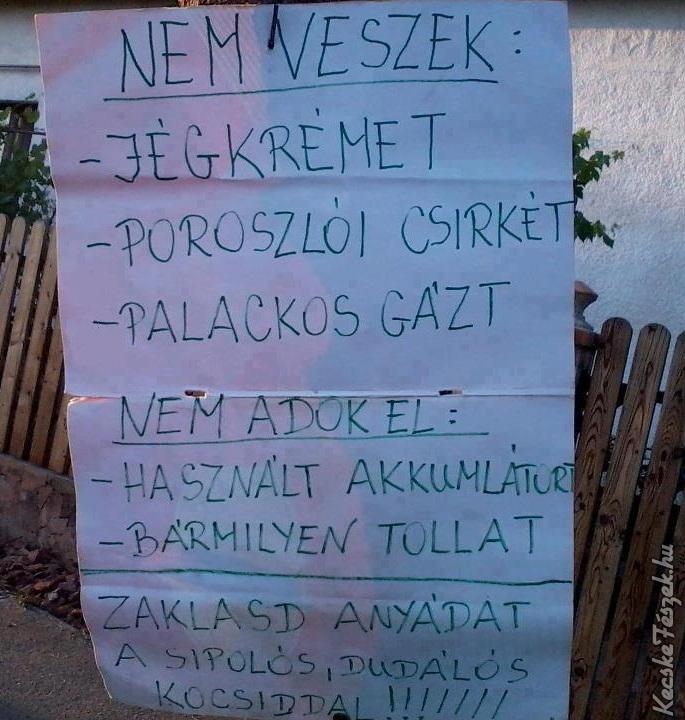 NEM VESZEK:
-JÉGKRÉMET
-POROSZLÓI CSIRKÉT
-PALACKOS GÁZT
NEM ADOK EL:
-HASZNÁLT AKKUMLÁTORT
-BÁRMILYEN TOLLAT
ZAKLASD ANYÁDAT
A SIPOLÓS, DUDÁLÓS
KOCSIDDAL !!!!!!!!
KecskeFészek.hu